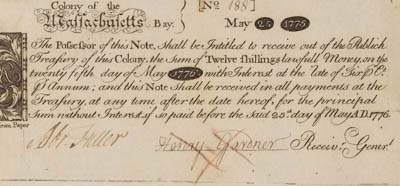 Colony of the [No 188]
Massachusetts Bay. May 25 1775
The Possessor of this Note, Shall be Intitled to receive out of the Publick
Treasury of this Colony, the Sum of Twelve Shillings lawfull Money, on the
twenty fifth day of May 1776, with Interest at the rate of Six p Ct.
p Annum; and this Note Shall be received in all payments at the
Treasury, at any time after the date hereof, for the principal
Sum without Interest, if so paid before the said 25th day of May A.D. 1776.
Henry Gardner Receivr. Generl.